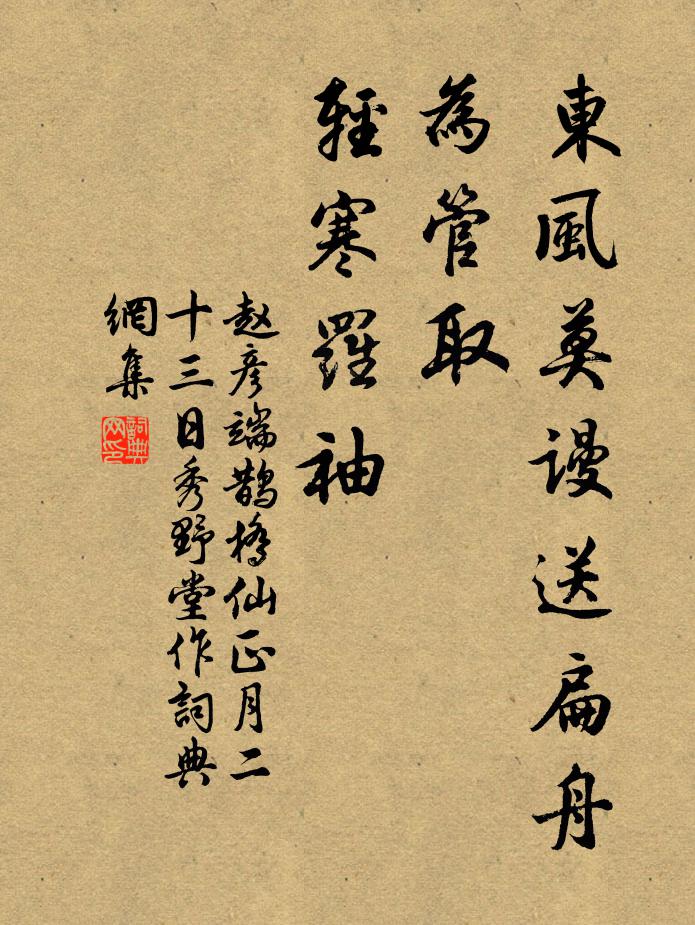 東風莫謾送扁舟
為管取
輕寒羅袖
赵彥端鵲橋仙正月二
十三日秀野堂作詞典
網集
詞典
网印